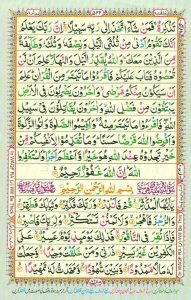 تَذْكِرَةٌ فَمَنْ شَاءَ اتَّخَذَ إِلَى رَبِّهِ سَبِيلًا إِنَّ رَبَّكَ يَعْلَمُ
أَنَّكَ تَقُومُ أَدْنَى مِنْ ثُلُثَيِ اللَّيْلِ وَنِصْفَهُ وَثُلُثَهُ وَطَائِفَةٌ
مِنَ الَّذِينَ مَعَكَ وَاللَّهُ يُقَدِّرُ اللَّيْلَ وَالنَّهَارَ عَلِمَ أَنْ لَنْ
تُحْصُوهُ فَتَابَ عَلَيْكُمْ فَاقْرَءُوا مَا تَيَسَّرَ مِنَ الْقُرْآنِ عَلِمَ أَنْ
سَيَكُونُ مِنْكُمْ مَرْضَى وَآخَرُونَ يَضْرِبُونَ فِي الْأَرْضِ
يَبْتَغُونَ مِنْ فَضْلِ اللَّهِ وَآخَرُونَ يُقَاتِلُونَ فِي سَبِيلِ
اللَّهِ فَاقْرَءُوا مَا تَيَسَّرَ مِنْهُ وَأَقِيمُوا الصَّلٰوةَ وَآتُوا الزَّكٰوةَ
وَأَقْرِضُوا اللَّهَ قَرْضًا حَسَنًا وَمَا تُقَدِّمُوا لِأَنْفُسِكُمْ مِنْ
خَيْرٍ تَجِدُوهُ عِنْدَ اللَّهِ هُوَ خَيْرًا وَأَعْظَمَ أَجْرًا وَاسْتَغْفِرُوا
اللَّهَ إِنَّ اللَّهَ غَفُورٌ رَحِيمٌ
بِسْمِ اللَّهِ الرَّحْمٰنِ الرَّحِيمِ
يٰأَيُّهَا الْمُدَّثِّرُ قُمْ فَأَنْذِرْ وَرَبَّكَ فَكَبِّرْ وَثِيَابَكَ فَطَهِّرْ
وَالرُّجْزَ فَاهْجُرْ وَلَا تَمْنُنْ تَسْتَكْثِرُ وَلِرَبِّكَ فَاصْبِرْ
فَإِذَا نُقِرَ فِي النَّاقُورِ فَذٰلِكَ يَوْمَئِذٍ يَوْمٌ عَسِيرٌ عَلَى
الْكٰفِرِينَ غَيْرُ يَسِيرٍ ذَرْنِي وَمَنْ خَلَقْتُ وَحِيدًا وَجَعَلْتُ
لَهُ مَالًا مَمْدُودًا وَبَنِينَ شُهُودًا وَمَهَّدْتُ لَهُ تَمْهِيدًا